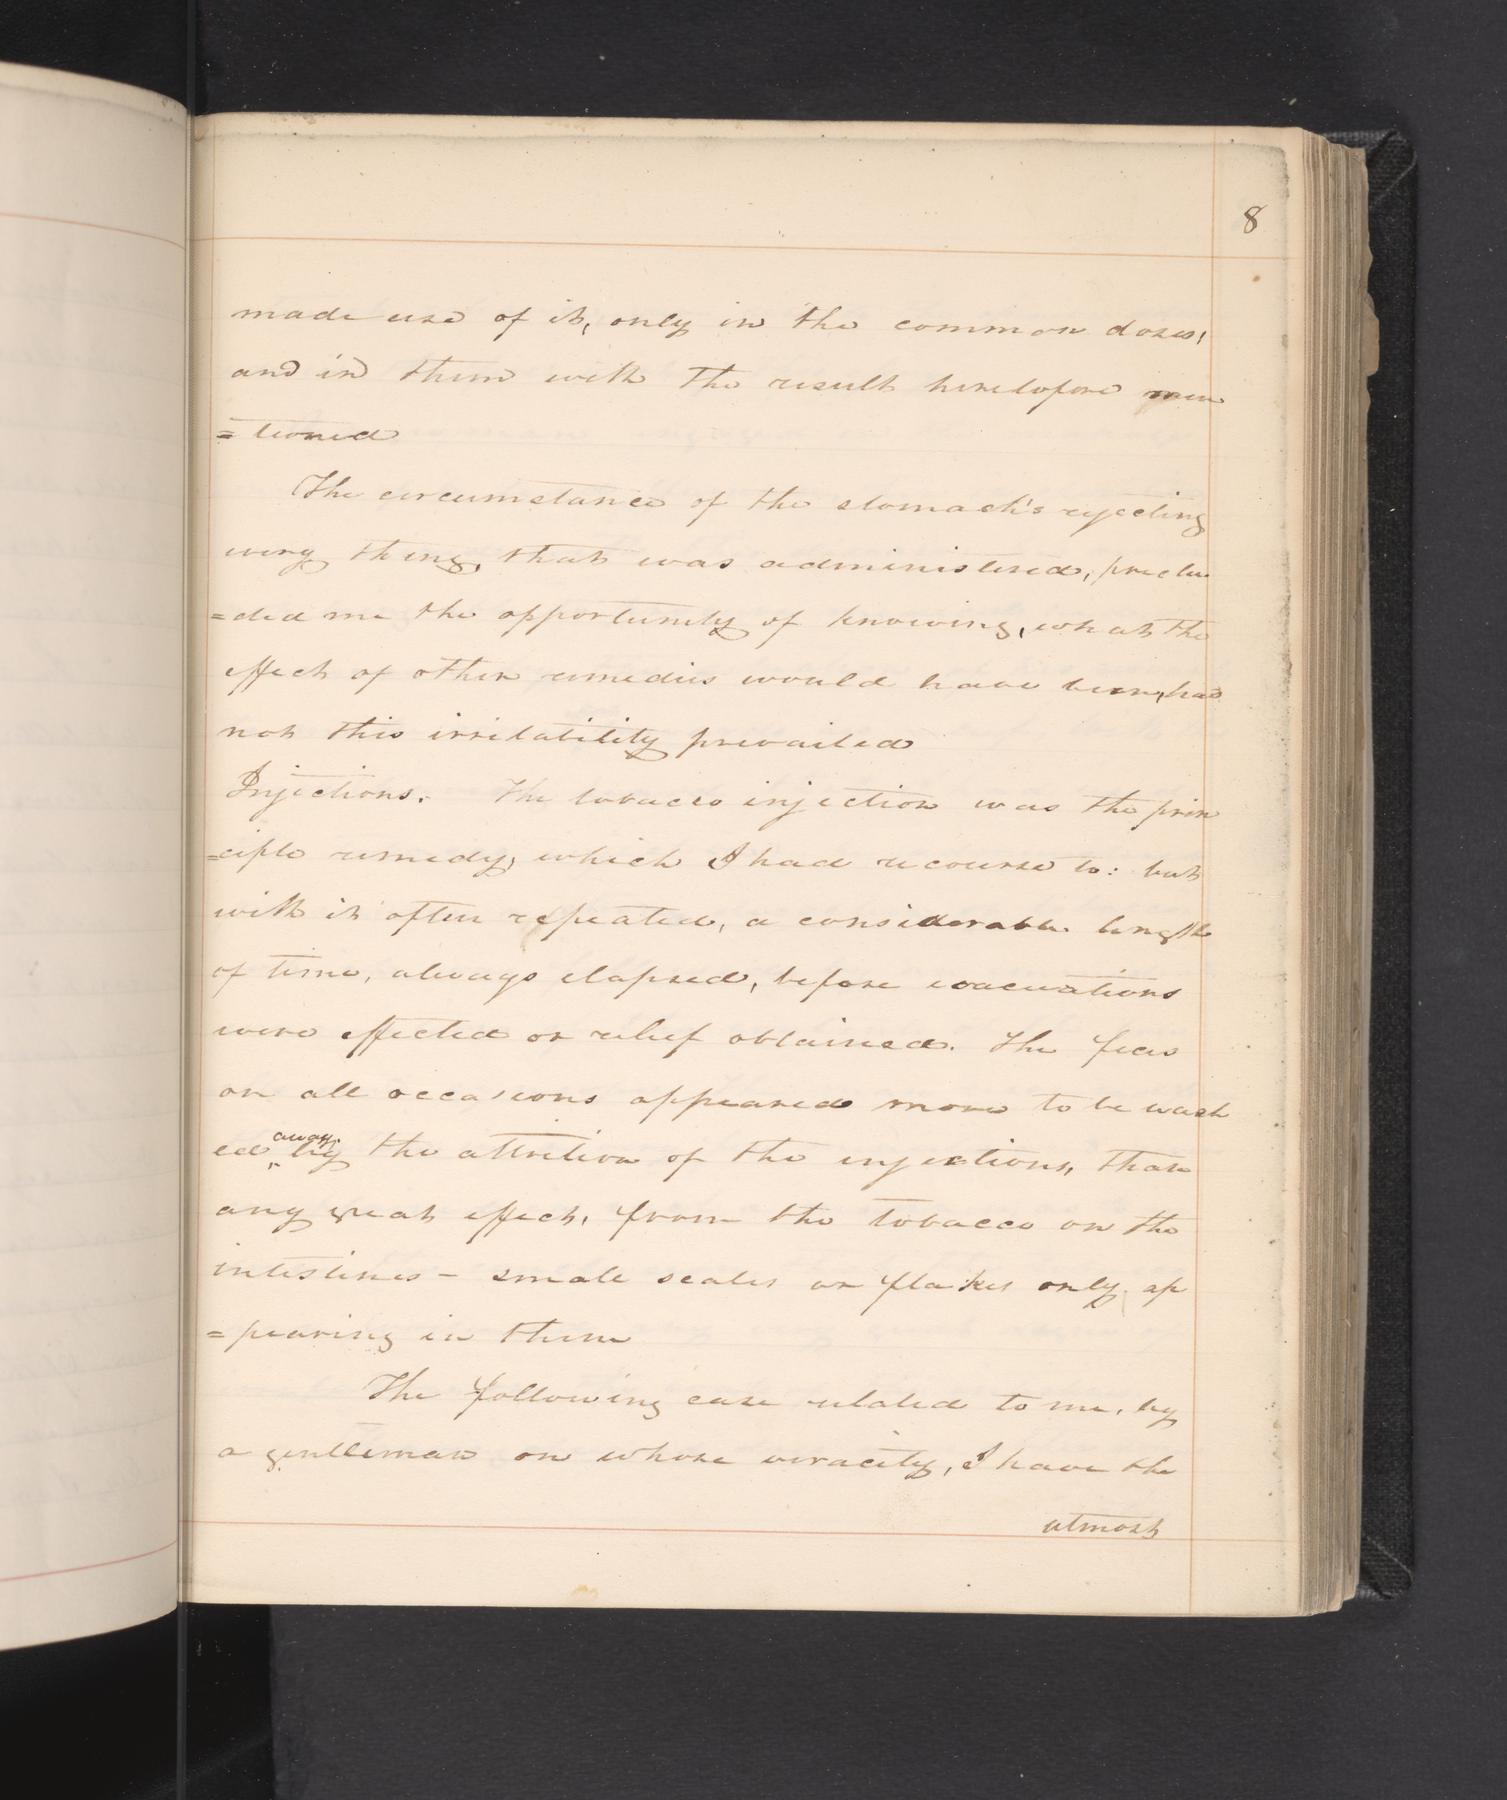 8
made use of it, only in the common doses,
and in them with the result heretofore men
=tioned
The circumstance of the stomach's rejecting
every thing, that was administered, preclu
=ded me the opportunity of knowing, what the
effect of other remedies would have been, had
not this irritability prevailed
Injections. The tobacco injection was the prin
=ciple remedy, which I had recourse to: but
with it often repeated, a considerable length
of time, always elapsed, before evacuations
were effected or relief obtained. The feces
on all occasions appeared more to be wash
ed away by the attrition of the injections, than
any great effect, from the tobacco on the
intestines - small scales or flakes only ap
=pearing in them
The following case related to me, by
a gentleman on whose veracity, I have the
utmost